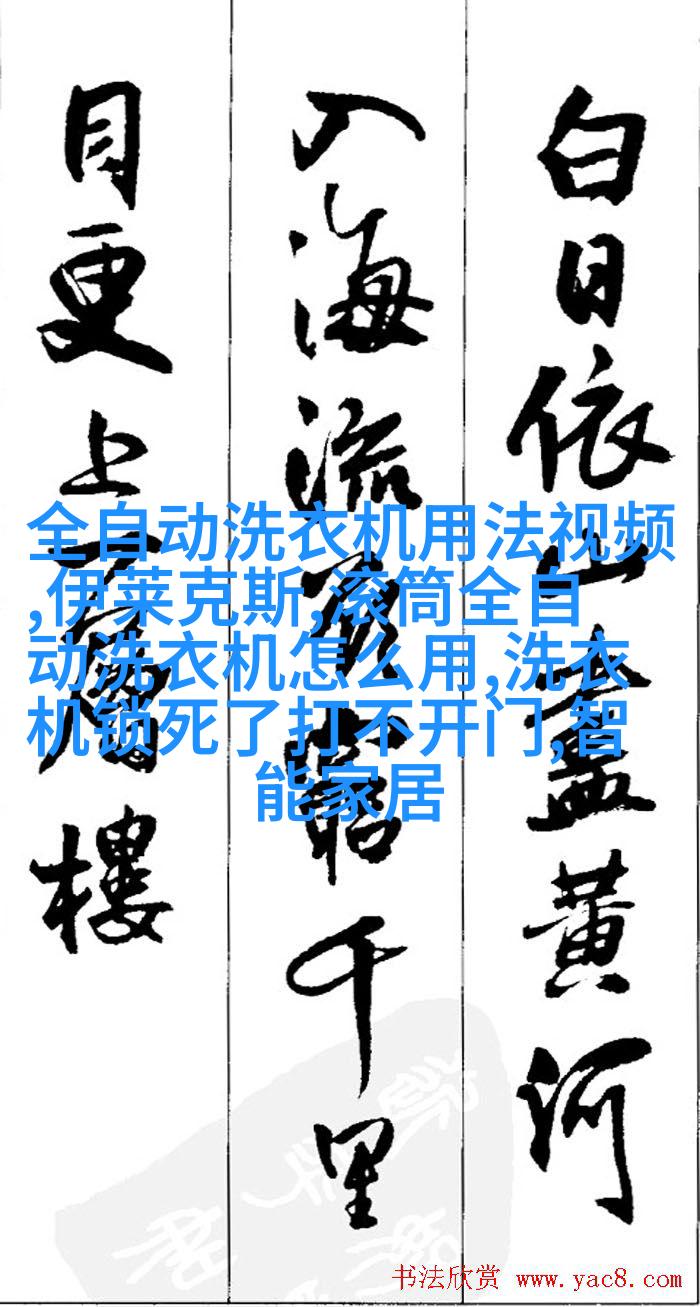 白日依山盡黄河
入海流欲窮千里
目更上一層樓
全自动洗衣机用法视频
,伊莱克斯,滚筒全自
动洗衣机怎么用,洗衣
机锁死了打不开门,智
能家居
书法欣赏 www.yac8.com